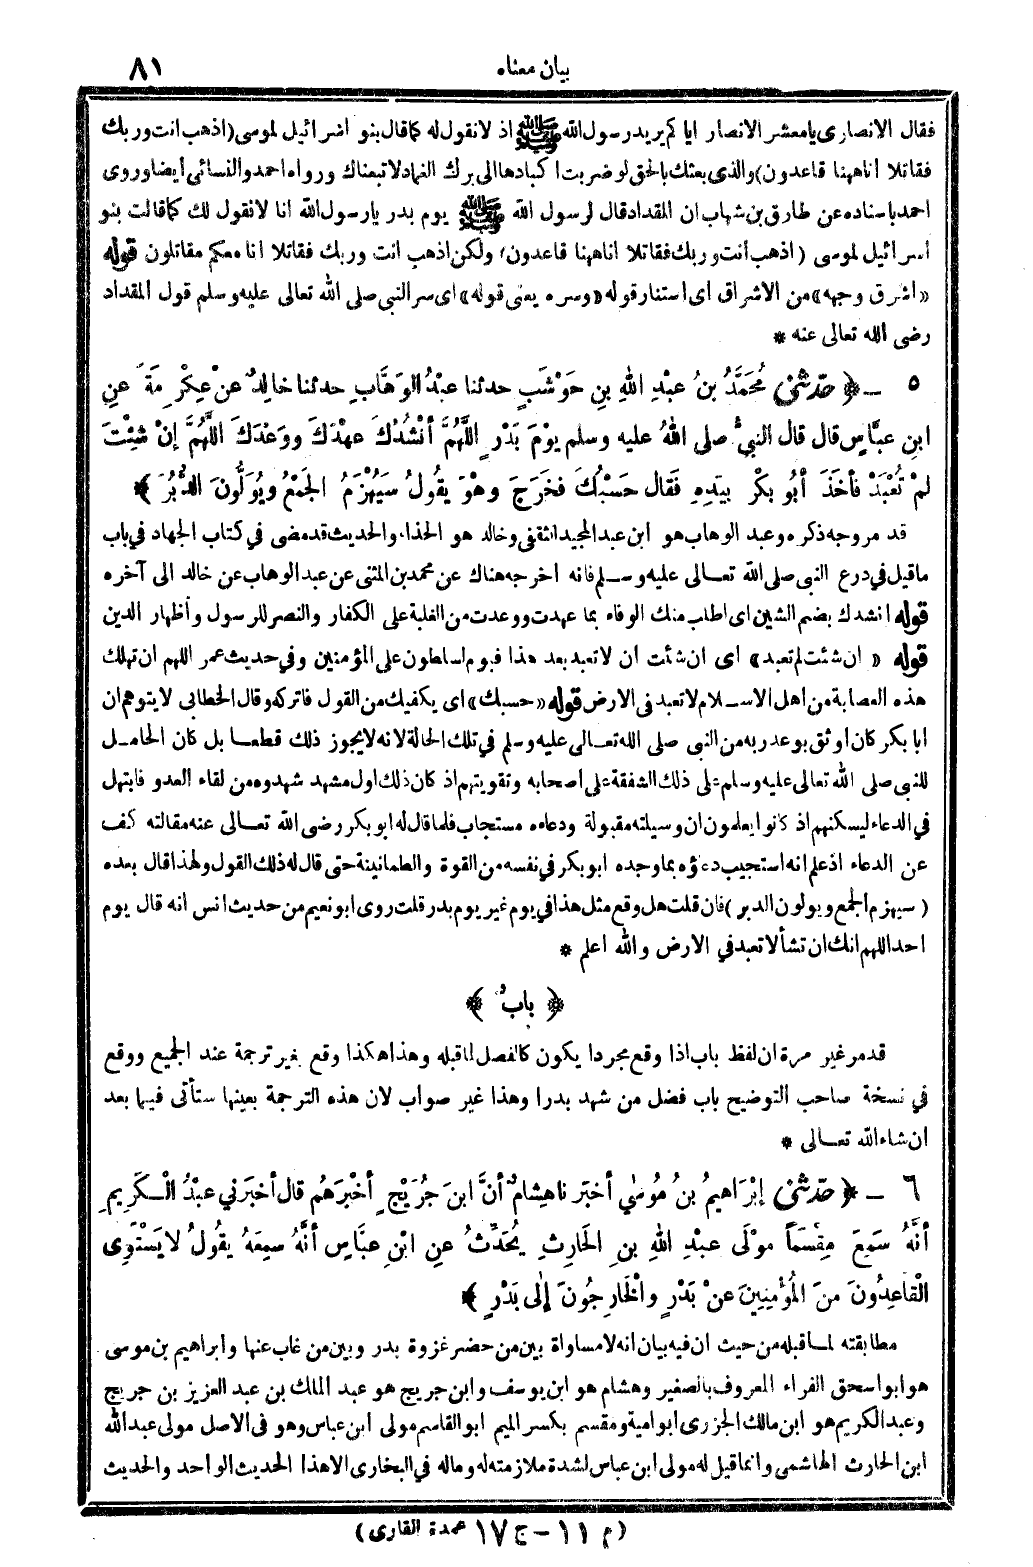 بيان معناه ٨١
فقال الانصارى يامعشر الانصار اياكم يريد رسول الله ﷺ اذ لانقول له كماقال بنو اسرائيل لموسى (اذهب انت وربك
فقاتلا اناههنا قاعدون) والذى بعثك بالحق لو ضربت اكبادها الى برك الغماد لاتبعناك ورواه احمد والنسائى أيضا وروى
احمد باسناده عن طارق بن شهاب ان المقداد قال لرسول الله ﷺ يوم بدر يارسول الله انا لانقول لك كماقالت بنو
اسرائيل لموسى (اذهب أنت وربك فقاتلا اناههنا قاعدون) ولكن اذهب انت وربك فقاتلا انا معكم مقاتلون قوله
«اشرق وجهه» من الاشراق اى استنار قوله «وسره يعنى قوله» اى سر النبي صلى الله تعالى عليه وسلم قول المقداد
رضى الله تعالى عنه *
٥ ــ ﴿ حدثنى مُحَمَّدُ بنُ عبْدِ اللهِ بنِ حَوْشَبٍ حدثنا عبْدُ الوَهَّابِ حدثنا خالِدٌ عنْ عِكْرِمَةَ عنِ
ابنِ عبَّاسٍ قال قال النبيُّ صلى اللهُ عليه وسلم يوْمَ بَدْرٍ اللَّهُمَّ أنْشُدُكَ عهْدَكَ ووَعْدَكَ اللَّهُمَّ إنْ شِئْتَ
لمْ تُعْبَدْ فأخَذَ أبُو بكْرٍ بيَدِهِ فقَال حَسْبُكَ فخَرَجَ وهْوَ يقُولُ سَيُهْزَمُ الجَمْعُ ويُوَلُّونَ الدُّبُرَ ﴾
قد مر وجه ذكره وعبد الوهاب هو ابن عبد المجيد الثقفى وخالد هو الحذاء والحديث قد مضى في كتاب الجهاد في باب
ماقيل في درع النبي صلى الله تعالى عليه وسلم فانه اخرجه هناك عن محمد بن المثنى عن عبد الوهاب عن خالد الى آخره
قوله انشدك بضم الشين اى اطلب منك الوفاء بما عهدت ووعدت من الغلبة على الكفار والنصر للرسول وأظهار الدين
قوله « ان شئت لم تعبد» اى ان شئت ان لا تعبد بعد هذا فيوم اسلطون على المؤمنين وفي حديث عمر اللهم ان تهلك
هذه العصابة من اهل الاسلام لا تعبد فى الارض قوله «حسبك» اى يكفيك من القول فاتركه وقال الخطابى لا يتوهم ان
ابا بكر كان اوثق بوعد ربه من النبى صلى الله تعالى عليه وسلم في تلك الحالة لانه لا يجوز ذلك قطعا بل كان الحامل
للنبى صلى الله تعالى عليه وسلم على ذلك الشفقة على اصحابه وتقويتهم اذ كان ذلك اول مشهد شهدوه من لقاء العدو فابتهل
في الدعاء ليسكنهم اذ كانوا يعلمون ان وسيلته مقبولة ودعاءه مستجاب فلما قال له ابو بكر رضى الله تعالى عنه مقالته كف
عن الدعاء اذ علم انه استجيب دعاؤه بما وجده ابو بكر في نفسه من القوة والطمانينة حتى قال له ذلك القول ولهذا قال بعده
(سيهزم الجمع ويولون الدبر) فان قلت هل وقع مثل هذا في يوم غير يوم بدر قلت روى ابو نعيم من حديث انس انه قال يوم
احد اللهم انك ان تشأ لا تعبد في الارض والله اعلم *
﴿ بابٌ ﴾
قد مر غير مرة ان لفظ باب اذا وقع مجردا يكون كالفصل لما قبله وهذا هكذا وقع بغير ترجمة عند الجميع ووقع
في نسخة صاحب التوضيح باب فضل من شهد بدرا وهذا غير صواب لان هذه الترجمة بعينها ستأتى فيما بعد
ان شاء الله تعالى *
٦ ــ ﴿ حدثنى إبْرَاهِيمُ بنُ مُوسٰى أخبَرَنا هِشامٌ أنَّ ابنَ جُرَيْجٍ أخْبَرَهُم قال أخبَرَني عبْدُ الْكَرِيمِ
أنَّهُ سَمِعَ مِقْسَماً مَوْلَى عبْدِ اللهِ بنِ الحَارِثِ يُحَدِّثُ عنِ ابْنِ عبَّاسٍ أنَّهُ سمِعَهُ يقُولُ لا يَسْتَوِى
الْقَاعِدُونَ منَ الْمُؤْمِنِينَ عنْ بَدْرٍ والْخَارِجُونَ إلٰى بَدْرٍ ﴾
مطابقته لما قبله من حيث ان فيه بيان انه لا مساواة بين من حضر غزوة بدر وبين من غاب عنها وابراهيم بن موسى
هو ابو اسحق الفراء المعروف بالصغير وهشام هو ابن يوسف وابن جريج هو عبد الملك بن عبد العزيز بن جريج
وعبد الكريم هو ابن مالك الجزرى ابو امية ومقسم بكسر الميم ابو القاسم مولى ابن عباس وهو فى الاصل مولى عبد الله
ابن الحارث الهاشمى وانما قيل له مولى ابن عباس لشدة ملازمته له وماله في البخارى الا هذا الحديث الواحد والحديث
(م ١١ – ج ١٧ عمدة القارى)